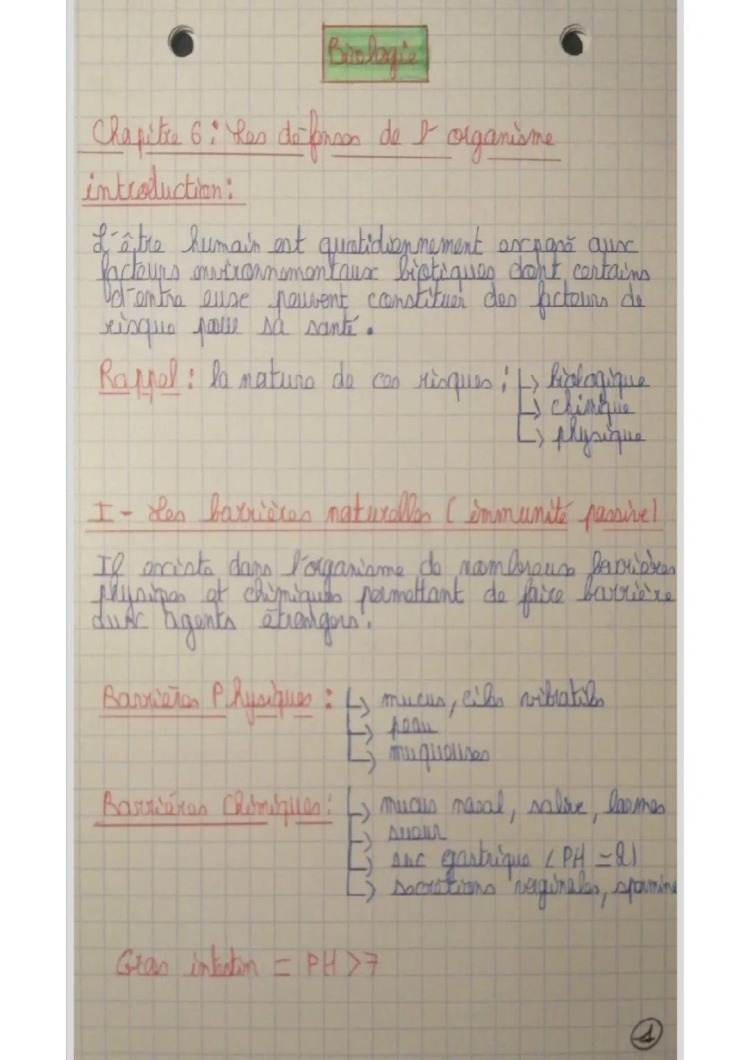 Biologie
Chapitre 6 : Les défenses de l'organisme
introduction :
L'être humain est quotidiennement exposé aux
facteurs environnementaux biotiques dont certains
d'entre eux peuvent constituer des facteurs de
risque pour sa santé.
Rappel : la nature de ces risques : ↳ biologique
↳ chimique
↳ physique
I - Les barrières naturelles ( immunité passive)
Il existe dans l'organisme de nombreuses barrières
physiques et chimiques permettant de faire barrière
aux agents étrangers.
Barrières Physiques : ↳ mucus, cils vibratils
↳ peau
↳ muqueuses
Barrières Chimiques : ↳ mucus nasal, salive, larmes
↳ sueur
↳ suc gastrique (PH = 2)
↳ secrétions vaginales, spermine
Gros intestin = PH > 7
1